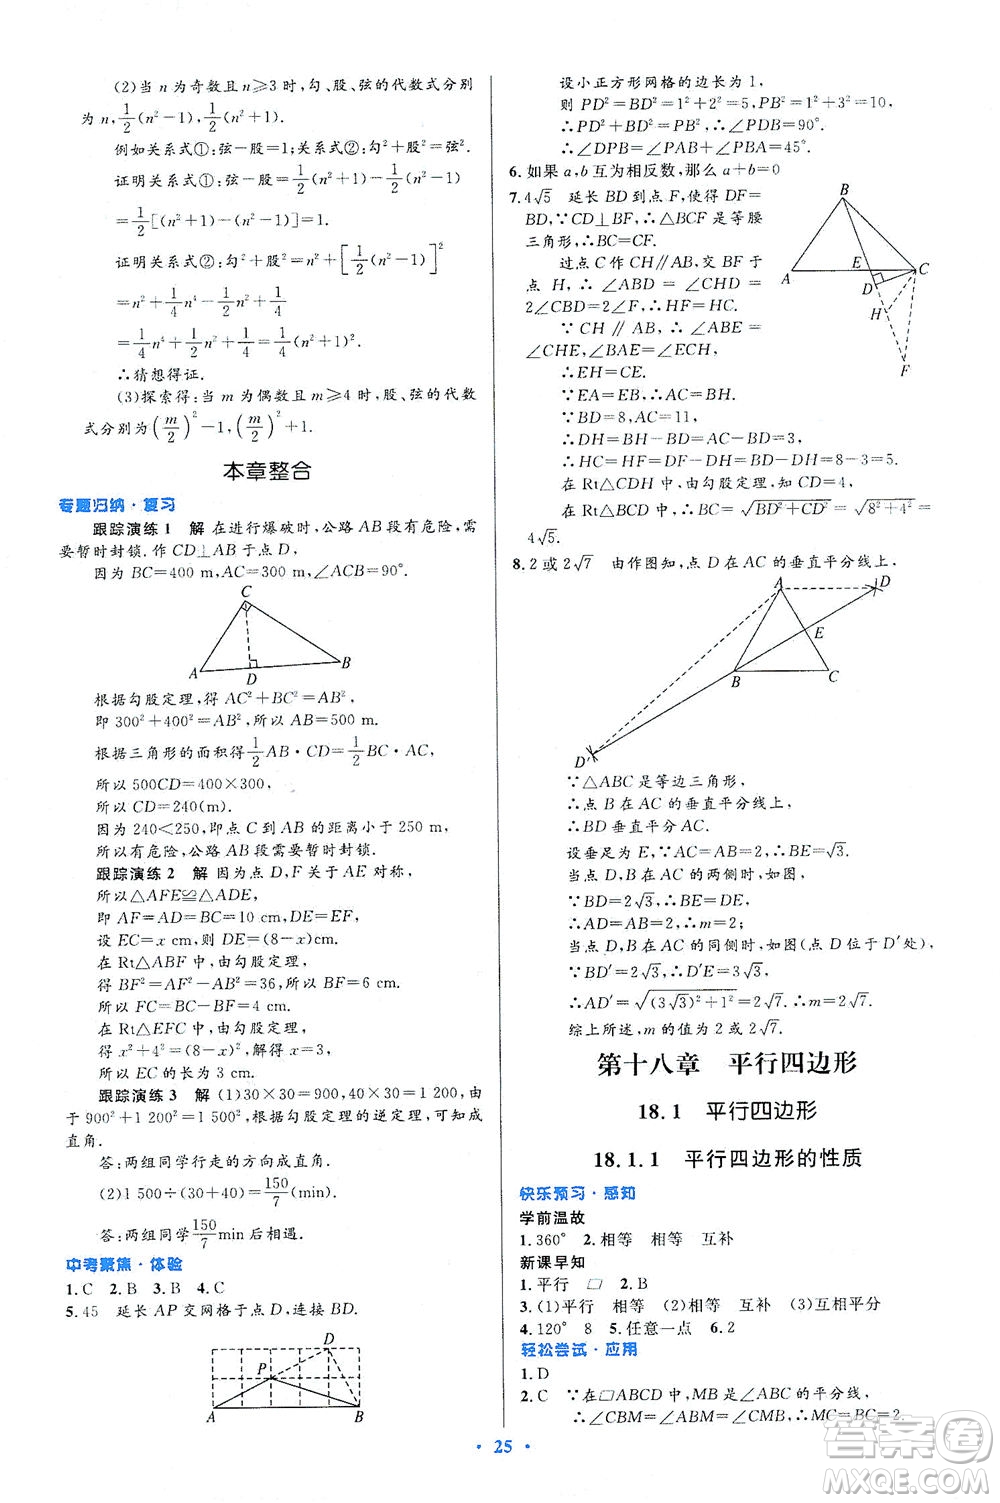 (2)当 n 为奇数且 n≥3 时,勾、股、弦的代数式分别
为 n,1/2(n²-1),1/2(n²+1).
例如关系式①:弦-股=1;关系式②:勾²+股²=弦².
证明关系式①:弦-股=1/2(n²+1)-1/2(n²-1)
=1/2[(n²+1)-(n²-1)]=1.
证明关系式②:勾²+股²=n²+[1/2(n²-1)]²
=1/4n⁴-1/2n²+n²+1/4
=1/4n⁴+1/2n²+1/4=1/4(n²+1)².
∴猜想得证.
(3)探索得:当 m 为偶数且 m≥4 时,股、弦的代数
式分别为(m/2)²-1,(m/2)²+1.
本章整合
专题归纳·复习
跟踪演练1 解 在进行爆破时,公路 AB 段有危险,需
要暂时封锁.作 CD⊥AB 于点 D,
因为 BC=400 m,AC=300 m,∠ACB=90°.
C
A
D
B
根据勾股定理,得 AC²+BC²=AB²,
即 300²+400²=AB²,所以 AB=500 m.
根据三角形的面积得1/2AB·CD=1/2BC·AC,
所以 500CD=400×300.
所以 CD=240(m).
因为 240<250,即点 C 到 AB 的距离小于 250 m,
所以有危险,公路 AB 段需要暂时封锁.
跟踪演练2 解 因为点 D,F 关于 AE 对称,
所以△AFE≌△ADE,
即 AF=AD=BC=10 cm,DE=EF.
设 EC=x cm,则 DE=(8-x)cm.
在 Rt△ABF 中,由勾股定理,
得 BF²=AF²-AB²=36.所以 BF=6 cm.
所以 FC=BC-BF=4 cm.
在 Rt△EFC 中,由勾股定理,
得 x²+4²=(8-x)²,解得 x=3.
所以 EC 的长为 3 cm.
跟踪演练3 解 (1)30×30=900,40×30=1 200,由
于 900²+1 200²=1 500²,根据勾股定理的逆定理,可知成
直角.
答:两组同学行走的方向成直角.
(2)1 500÷(30+40)=150/7(min).
答:两组同学150/7min 后相遇.
中考聚焦·体验
1.C 2.B 3.B 4.C
5.45 延长 AP 交网格于点 D,连接 BD.
D
P
A
B
设小正方形网格的边长为 1,
则 PD²=BD²=1²+2²=5,PB²=1²+3²=10,
∴PD²+BD²=PB²,∴∠PDB=90°.
∴∠DPB=∠PAB+∠PBA=45°.
6.如果 a,b 互为相反数,那么 a+b=0
7.4√5 延长 BD 到点 F,使得 DF=
BD,∵CD⊥BF,∴△BCF 是等腰
三角形,∴BC=CF.
过点 C 作 CH∥AB,交 BF 于
点 H,∴∠ABD=∠CHD=
2∠CBD=2∠F,∴HF=HC.
∵CH∥AB,∴∠ABE=
∠CHE,∠BAE=∠ECH,
∴EH=CE.
∵EA=EB,∴AC=BH.
∵BD=8,AC=11,
∴DH=BH-BD=AC-BD=3,
∴HF=HC=DF-DH=BD-DH=8-3=5.
在 Rt△CDH 中,由勾股定理,得 CD=4.
在 Rt△BCD 中,∴BC=√(BD²+CD²)=√(8²+4²)=
4√5.
B
A
E
C
D
H
F
8.2 或 2√7 由作图知,点 D 在 AC 的垂直平分线上,
A
D
E
B
C
D′
∵△ABC 是等边三角形,
∴点 B 在 AC 的垂直平分线上,
∴BD 垂直平分 AC.
设垂足为 E,∵AC=AB=2,∴BE=√3.
当点 D,B 在 AC 的两侧时,如图,
∵BD=2√3,∴BE=DE,
∴AD=AB=2,∴m=2;
当点 D,B 在 AC 的同侧时,如图(点 D 位于 D′处),
∵BD′=2√3,∴D′E=3√3,
∴AD′=√((3√3)²+1²)=2√7,∴m=2√7.
综上所述,m 的值为 2 或 2√7.
第十八章 平行四边形
18.1 平行四边形
18.1.1 平行四边形的性质
快乐预习·感知
学前温故
1.360° 2.相等 相等 互补
新课早知
1.平行 ▱ 2.B
3.(1)平行 相等 (2)相等 互补 (3)互相平分
4.120° 8 5.任意一点 6.2
轻松尝试·应用
1.D
2.C ∵在▱ABCD 中,MB 是∠ABC 的平分线,
∴∠CBM=∠ABM=∠CMB,∴MC=BC=2.
·25·
答案圈
MXQE.COM